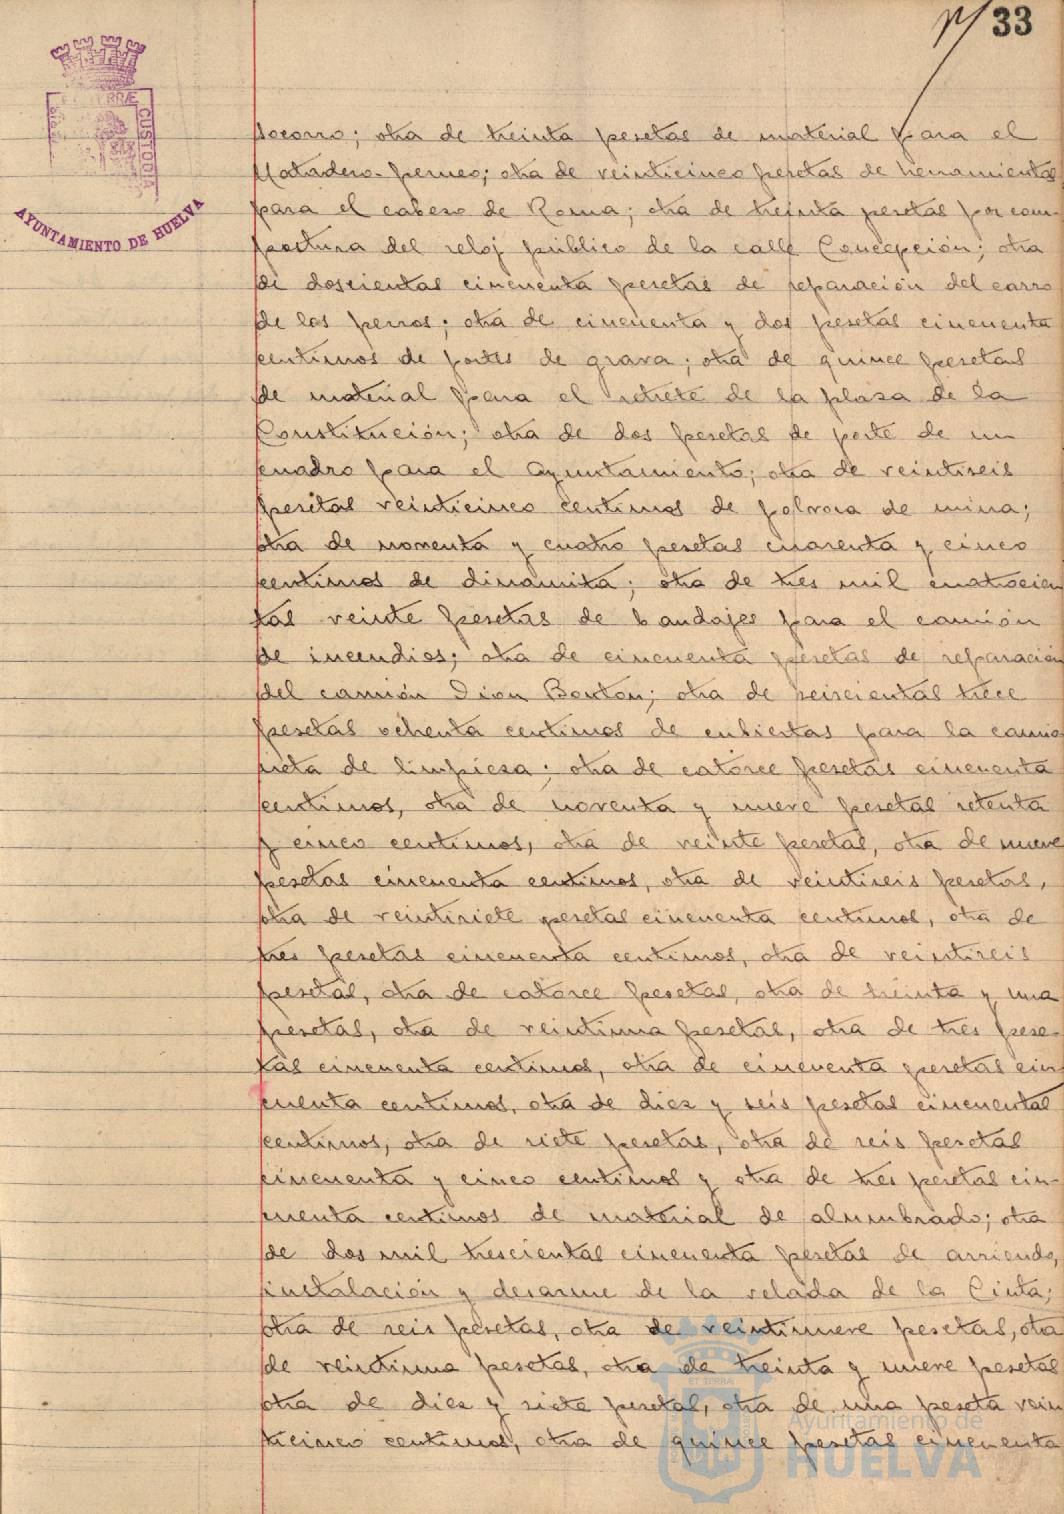 33
ET TERRÆ
CUSTODIA
AYUNTAMIENTO DE HUELVA
socorro; otra de treinta pesetas de material para el
Matadero-perneo; otra de veinticinco pesetas de herramientas
para el cabezo de Roma; otra de treinta pesetas por com-
postura del reloj público de la calle Concepción; otra
de doscientas cincuenta pesetas de reparación del carro
de los perros; otra de cincuenta y dos pesetas cincuenta
centimos de portes de grava; otra de quince pesetas
de material para el retrete de la plaza de la
Constitución; otra de dos pesetas de porte de un
cuadro para el Ayuntamiento; otra de veintiseis
pesetas veinticinco centimos de polvora de mina;
otra de noventa y cuatro pesetas cuarenta y cinco
centimos de dinamita; otra de tres mil cuatrocien
tas veinte pesetas de bandajes para el camión
de incendios; otra de cincuenta pesetas de reparación
del camión Dion Bouton; otra de seiscientas trece
pesetas ochenta centimos de cubiertas para la camio
neta de limpieza; otra de catorce pesetas cincuenta
centimos, otra de noventa y nueve pesetas setenta
y cinco centimos, otra de veinte pesetas, otra de nueve
pesetas cincuenta centimos, otra de veintiseis pesetas,
otra de veintisiete pesetas cincuenta centimos, otra de
tres pesetas cincuenta centimos, otra de veintiseis
pesetas, otra de catorce pesetas, otra de treinta y una
pesetas, otra de veintiuna pesetas, otra de tres pese-
tas cincuenta centimos, otra de cincuenta pesetas cin
cuenta centimos, otra de diez y seis pesetas cincuentas
centimos, otra de siete pesetas, otra de seis pesetas
cincuenta y cinco centimos y otra de tres pesetas cin-
cuenta centimos de material de alumbrado; otra
de dos mil trescientas cincuenta pesetas de arriendo,
instalación y desarme de la velada de la Cinta;
otra de seis pesetas, otra de veintinueve pesetas, otra
de veintiuna pesetas, otra de treinta y nueve pesetas
otra de diez y siete pesetas, otra de una peseta vein
ticinco centimos, otra de quince pesetas cincuenta
Ayuntamiento de
HUELVA